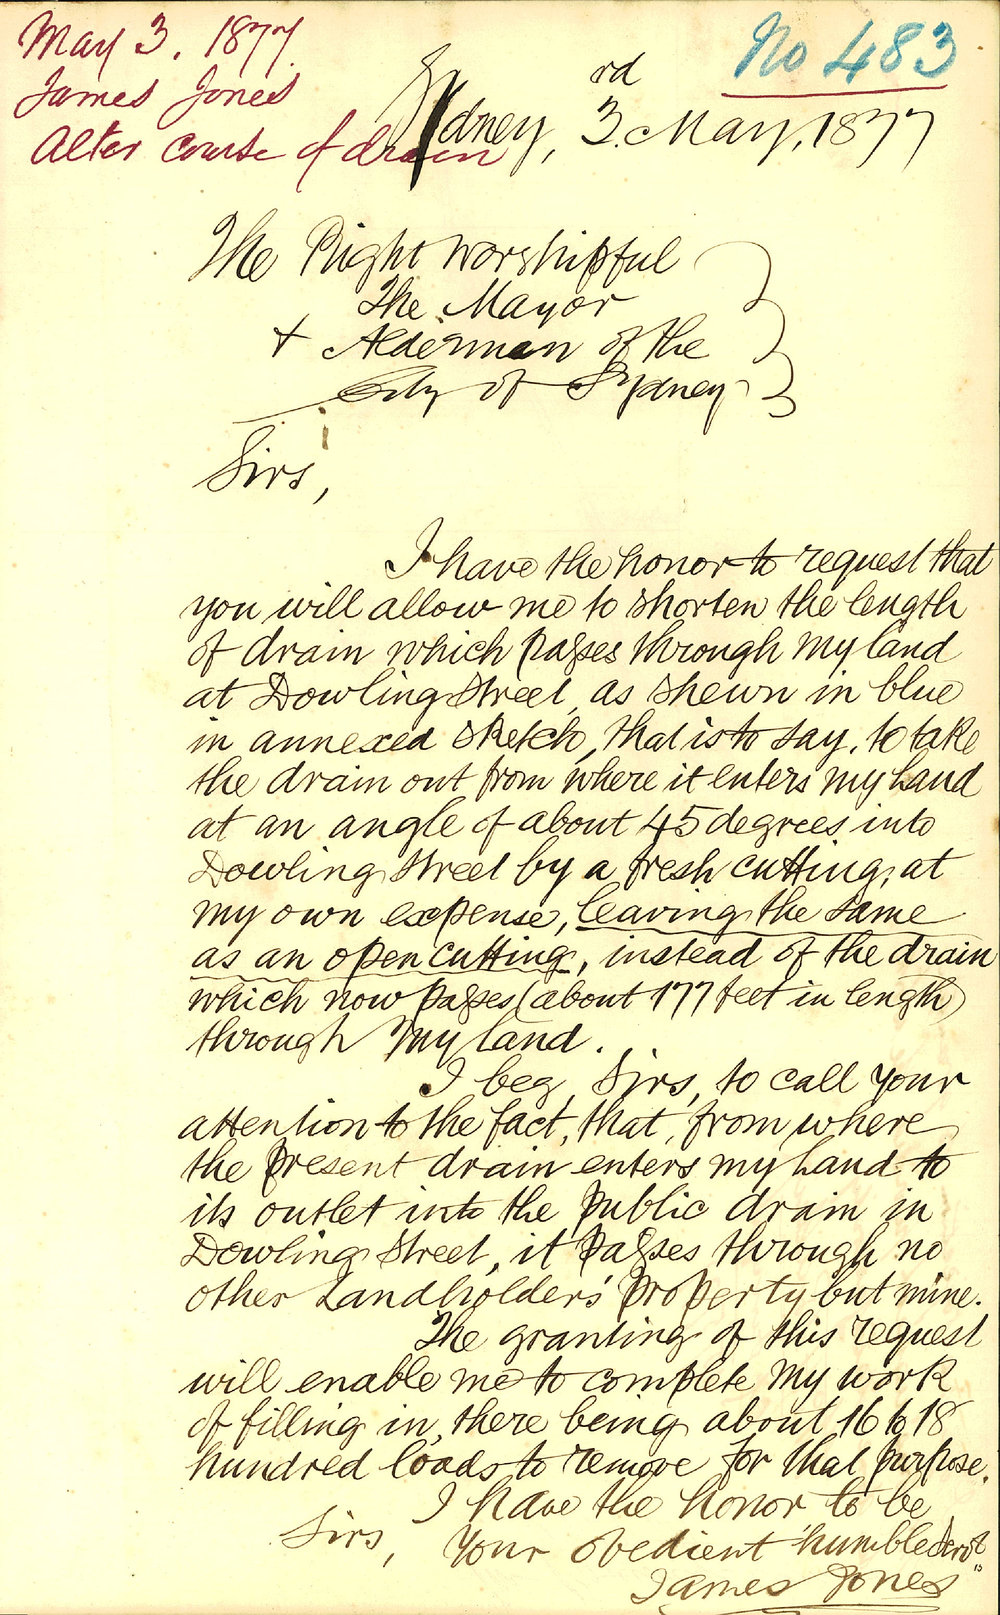 May 3. 1877.
James Jones
Alter course of drain
No 483
Sydney, 3rd May, 1877
The Right Worshipful
The Mayor
+ Aldermen of the
City of Sydney
Sirs,
I have the honor to request that
you will allow me to shorten the length
of drain which passes through my land
at Dowling Street, as shewn in blue
in annexed sketch, that is to say, to take
the drain out from where it enters my land
at an angle of about 45 degrees into
Dowling Street by a fresh cutting, at
my own expense, leaving the same
as an open cutting, instead of the drain
which now passes (about 177 feet in length)
through my land.
I beg, Sirs, to call your
attention to the fact, that, from where
the present drain enters my land to
its outlet into the public drain in
Dowling Street, it passes through no
other Landholders' property but mine.
The granting of this request
will enable me to complete my work
of filling in, there being about 16 to 18
hundred loads to remove for that purpose.
I have the honor to be
Sirs, Your obedient humble Servt
James Jones